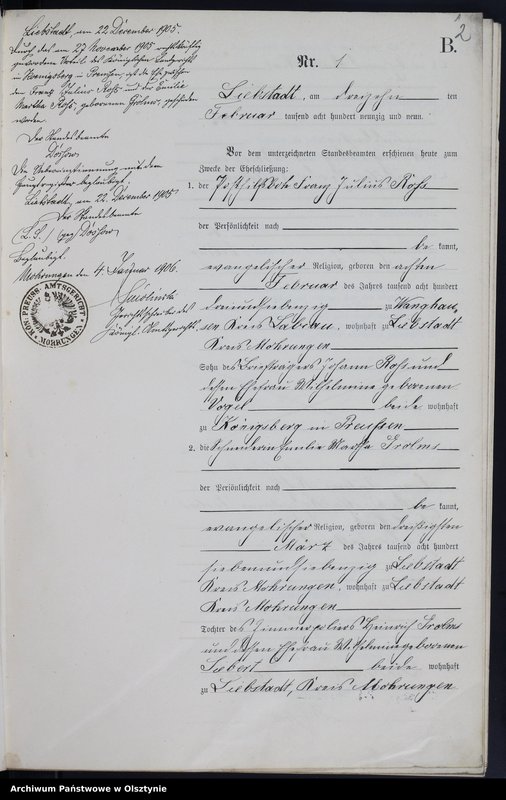 2
B.
Nr. 1
Liebstadt, am 22 Dezember 1905.
Durch das am 27 November 1905 rechtskräftig
gewordene Urteil des Königlichen Landgerichts
in Koenigsberg in Preussen, ist die Ehe zwischen
dem Franz Julius Roß und der Emilie
Martha Roß, geborenen Grolms, geschieden
worden.
Der Standesbeamte
Die Uebereinstimmung mit dem
Hauptregister beglaubigt.
Liebstadt, am 22. Dezember 1905
Der Standesbeamte
(L.S.) (gez)
Beglaubigt.
Mohrungen den 4. Januar 1906.
Gerichtsschreiber des
Königl. Amtsgerichts.
KGL. PREUSS. AMTSGERICHT
MOHRUNGEN
Liebstadt, am dreizehn ten
Februar tausend acht hundert neunzig und neun.
Vor dem unterzeichneten Standesbeamten erschienen heute zum
Zwecke der Eheschließung:
1. der Posthilfsbote Franz Julius Roß
der Persönlichkeit nach
be kannt,
evangelischer Religion, geboren den achten
Februar des Jahres tausend acht hundert
dreiundsiebenzig zu
sen Kreis Labiau, wohnhaft zu Liebstadt
Kreis Mohrungen
Sohn des Briefträgers Johann Roß und
dessen Ehefrau Wilhelmine geborenen
Vogel beide wohnhaft
zu Königsberg in Preußen
2. die Schneiderin Emilie Martha Grolms
der Persönlichkeit nach
be kannt,
evangelischer Religion, geboren den dreißigsten
März des Jahres tausend acht hundert
siebenundsiebenzig zu Liebstadt
Kreis Mohrungen, wohnhaft zu Liebstadt
Kreis Mohrungen
Tochter des Zimmerpoliers Heinrich Grolms
und dessen Ehefrau Wilhelmine geborenen
Siebert beide wohnhaft
zu Liebstadt, Kreis Mohrungen
Archiwum Państwowe w Olsztynie